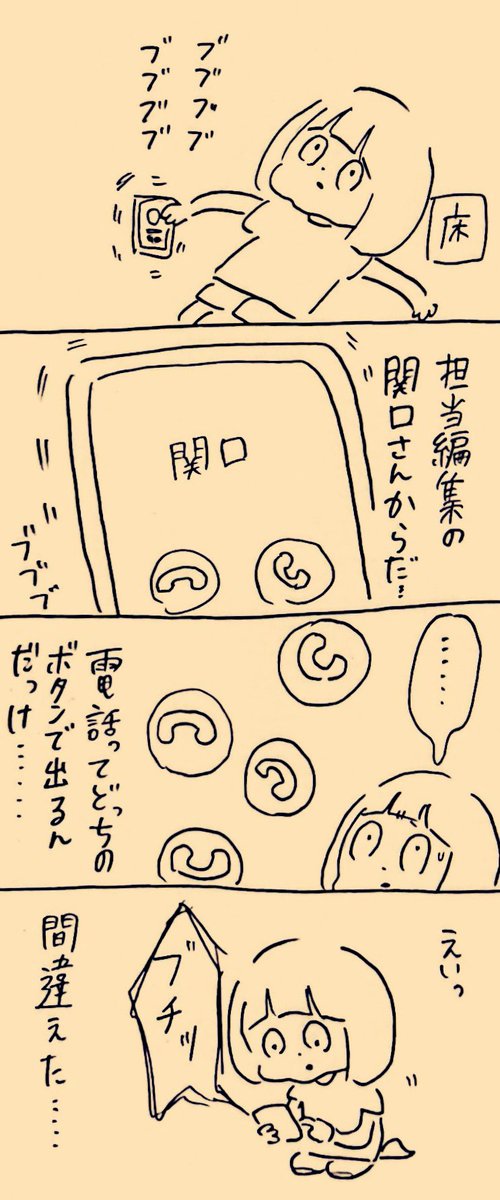 ブブブブ
ブブブブ
床
担当編集の
関口さんからだ…
関口
ブブブ
……
電話ってどっちの
ボタンで出るん
だっけ……
えいっ
ブチッ
間違えた……